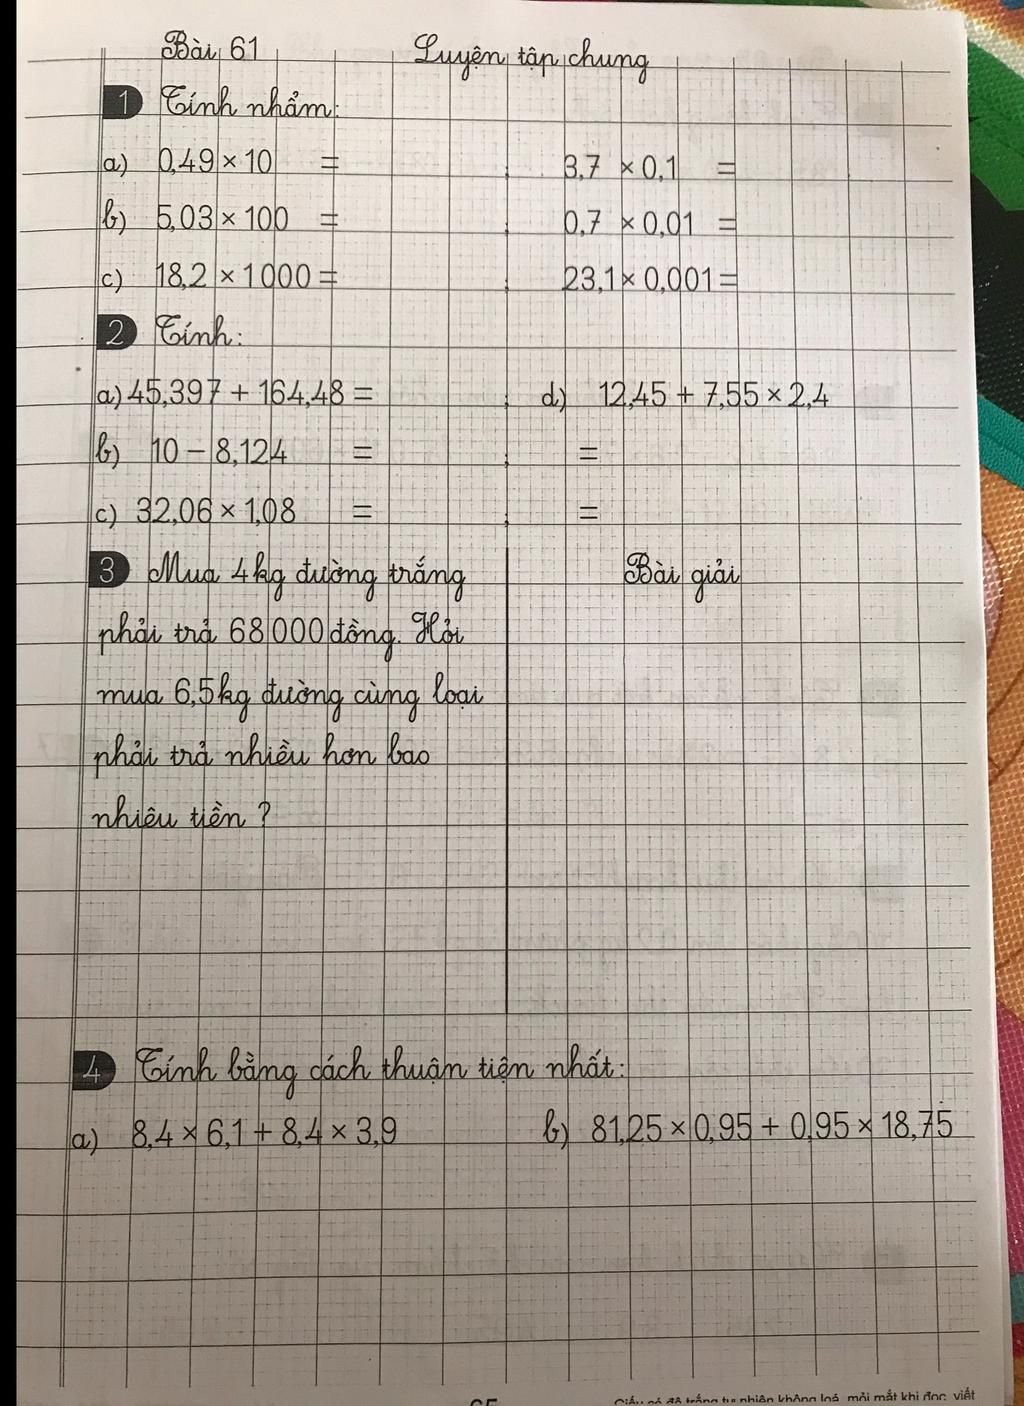 Bài 61 Luyện tập chung
1 Tính nhẩm:
a) 0,49 × 10 = ; 3,7 × 0,1 =
b) 5,03 × 100 = ; 0,7 × 0,01 =
c) 18,2 × 1000 = ; 23,1 × 0,001 =
2 Tính:
a) 45,397 + 164,48 = ; d) 12,45 + 7,55 × 2,4
b) 10 – 8,124 = ; =
c) 32,06 × 1,08 = ; =
3 Mua 4kg đường trắng
phải trả 68 000 đồng. Hỏi
mua 6,5kg đường cùng loại
phải trả nhiều hơn bao
nhiêu tiền ?
Bài giải
4 Tính bằng cách thuận tiện nhất:
a) 8,4 × 6,1 + 8,4 × 3,9 b) 81,25 × 0,95 + 0,95 × 18,75
Giấy có độ trắng tự nhiên không loá, mỏi mắt khi đọc, viết